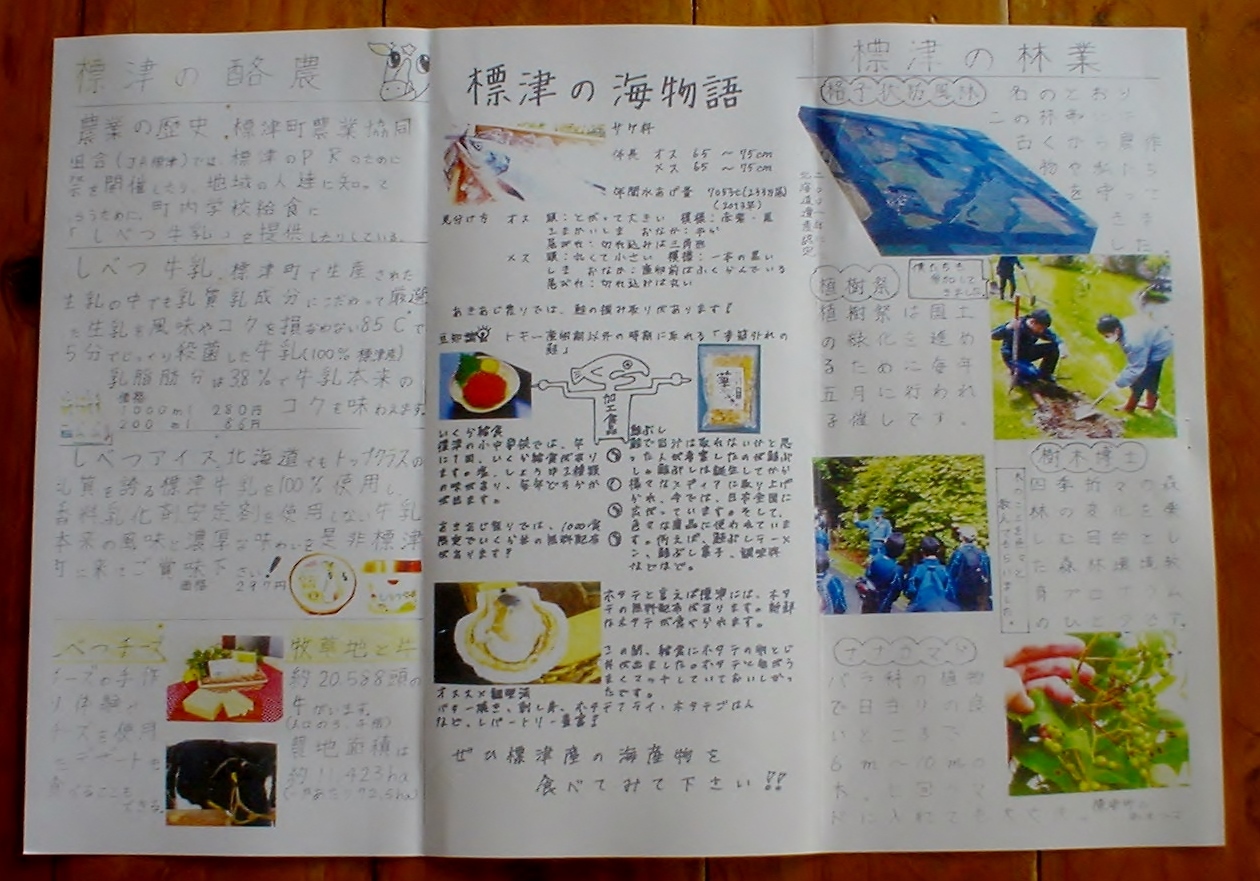 標津の酪農
農業の歴史 標津町農業協同
組合(JA標津)では、標津のPRのために
祭を開催したり、地域の人達に知って
もらうために、町内学校給食に
「しべつ牛乳」を提供したりしている。
しべつ牛乳 標津町で生産された
生乳の中でも乳質乳成分にこだわって厳選
した生乳を風味やコクを損なわない85℃で
5分でじっくり殺菌した牛乳(100%標津産)
乳脂肪分は3.8%で牛乳本来の
コクを味わえます
価格
1000ml 280円
200ml 86円
しべつアイス 北海道でもトップクラスの
乳質を誇る標津牛乳を100%使用し、
香料乳化剤安定剤を使用しない牛乳
本来の風味と濃厚な味わいを是非標津
町に来てご賞味下さい!
価格 247円
しべつチーズ
チーズの手作
り体験
チーズを使用
したデザートも
食べることも
できる。
牧草地と牛
約20,588頭の
牛がいます。
農地面積は
約11,423ha
標津の海物語
サケ科
体長 オス 65 ~ 75cm
メス 65 ~ 75cm
年間水あげ量
(2013年)
見分け方 オス 頭:とがって大きい 模様:赤紫・黒
しまおなか:平ら
尾びれ:切れ込みは三角形
メス 頭:丸くて小さい 模様:一本の黒い
しま おなか:産卵前は小くらんでいる
尾びれ:切れ込みは丸い
あきあじ祭りでは、鮭の掴み取りがあります!
豆知識 トキ=産卵期以外の時期に取れる「季節外れの
鮭」
加工食品
いくら給食
標津の小中学校では、年
に1回、いくら給食があり
ます。塩、しょうゆ2種類
の味があり、毎年どちらかが
出ます。
あきあじ祭りでは、1000食
限定でいくら丼の無料配布
があります!
鮭ぶし
鮭で出汁は取れないかと思
った人が考案したのが鮭ぶ
し。鮭ぶしは誕生してから
様々なメディアに取り上げ
られ、今では、日本全国に
広がっています。そして、
色々な商品に使われていま
す。例えば、鮭ぶしラーメ
ン、鮭ぶし菓子、調味料
などなど。
ホタテと言えば標津には、ホタ
テの無料配布があります。新鮮
なホタテが食べられます。
この間、給食にホタテの卵とじ
丼が出ました。ホタテと卵がう
まくマッチしていておいしかっ
たです。
オススメ調理法
バター焼き、刺し身、ホタテフライ、ホタテごはん
など、レパートリー豊富!
ぜひ標津産の海産物を
食べてみて下さい!!
標津の林業
格子状防風林
名のとおり
この格子
古くから農作
物や私たち
を守って
きま
した。
北海道遺産認定
植樹祭
僕たちも
参加して
きました!
植樹祭は国土
の緑化を進め
るために毎年
五月に行われ
る催しです。
樹木博士
四季折々の森
林の変化を楽
しむ目的とし
た森林環境教
育プログラム
のひとつです。
木のことを色々と
教えてもらいました。
ナナカマド
バラ科の植物
で日当りの良
いところで
6m~10mの
木。